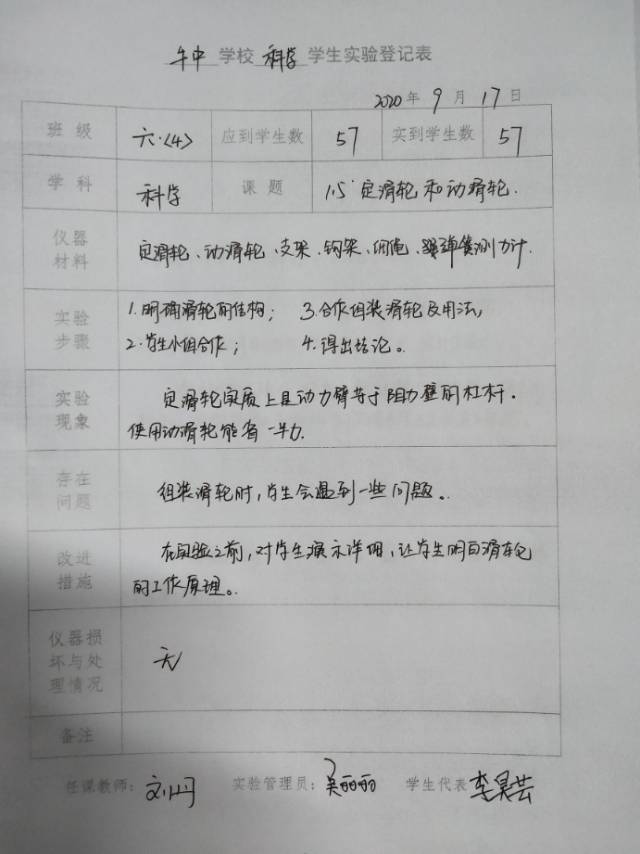 牛中 学校 科学 学生实验登记表
2020 年 9 月 17 日
班级 六.(4) 应到学生数 57 实到学生数 57
学科 科学 课题 1.5 定滑轮和动滑轮.
仪器材料 定滑轮、动滑轮、支架、钩架、细绳、弹簧测力计.
实验步骤 1. 明确滑轮的结构; 3. 合作组装滑轮及用法;
2. 学生小组合作; 4. 得出结论。
实验现象 定滑轮实质上是动力臂等于阻力壁的杠杆.
使用动滑轮能省一半力.
存在问题 组装滑轮时,学生会遇到一些问题。
改进措施 在实验之前,对学生演示详细,让学生明白滑轮
的工作原理。
仪器损坏与处理情况 无
备注
任课教师: 刘丹 实验管理员: 吴丽丽 学生代表 李昊芸